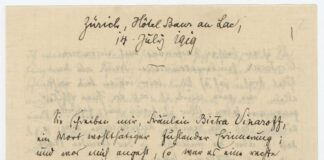 Zürich, Hôtel Baur au Lac,
14. July 1919
Sie schreiben mir, Fräulein Bistra Vinaroff,
ein Wort wohltätiger fühlender Erinnerung;
und was mich angeht, so war es eine rechte